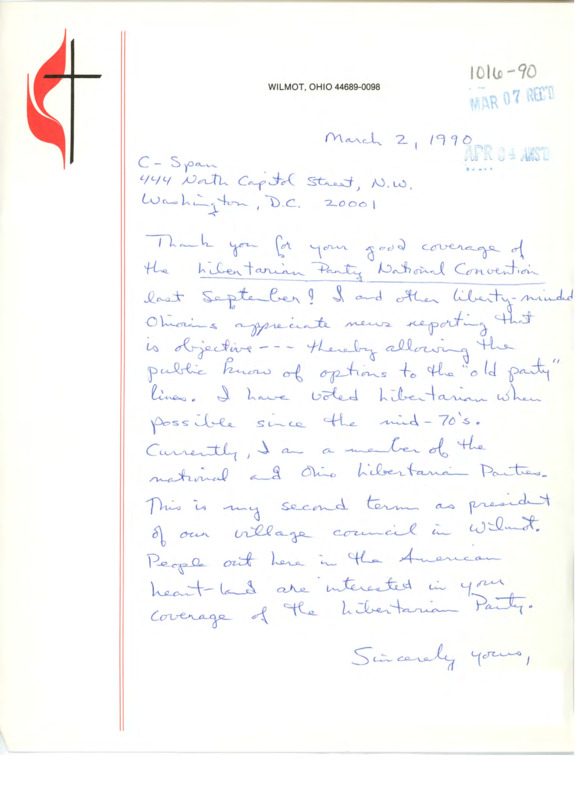 WILMOT, OHIO 44689-0098
1016-90
MAR 07 REC'D
March 2, 1990
APR 04 ANS'D
C-Span
444 North Capitol Street, N.W.
Washington, D.C. 20001
Thank you for your good coverage of
the Libertarian Party National Convention
last September! I and other liberty-minded
Ohioans appreciate news reporting that
is objective --- thereby allowing the
public know of options to the "old party"
lines. I have voted Libertarian when
possible since the mid-70's.
Currently, I am a member of the
national and Ohio Libertarian Parties.
This is my second term as president
of our village council in Wilmot.
People out here in the American
heart-land are interested in your
coverage of the Libertarian Party.
Sincerely yours,